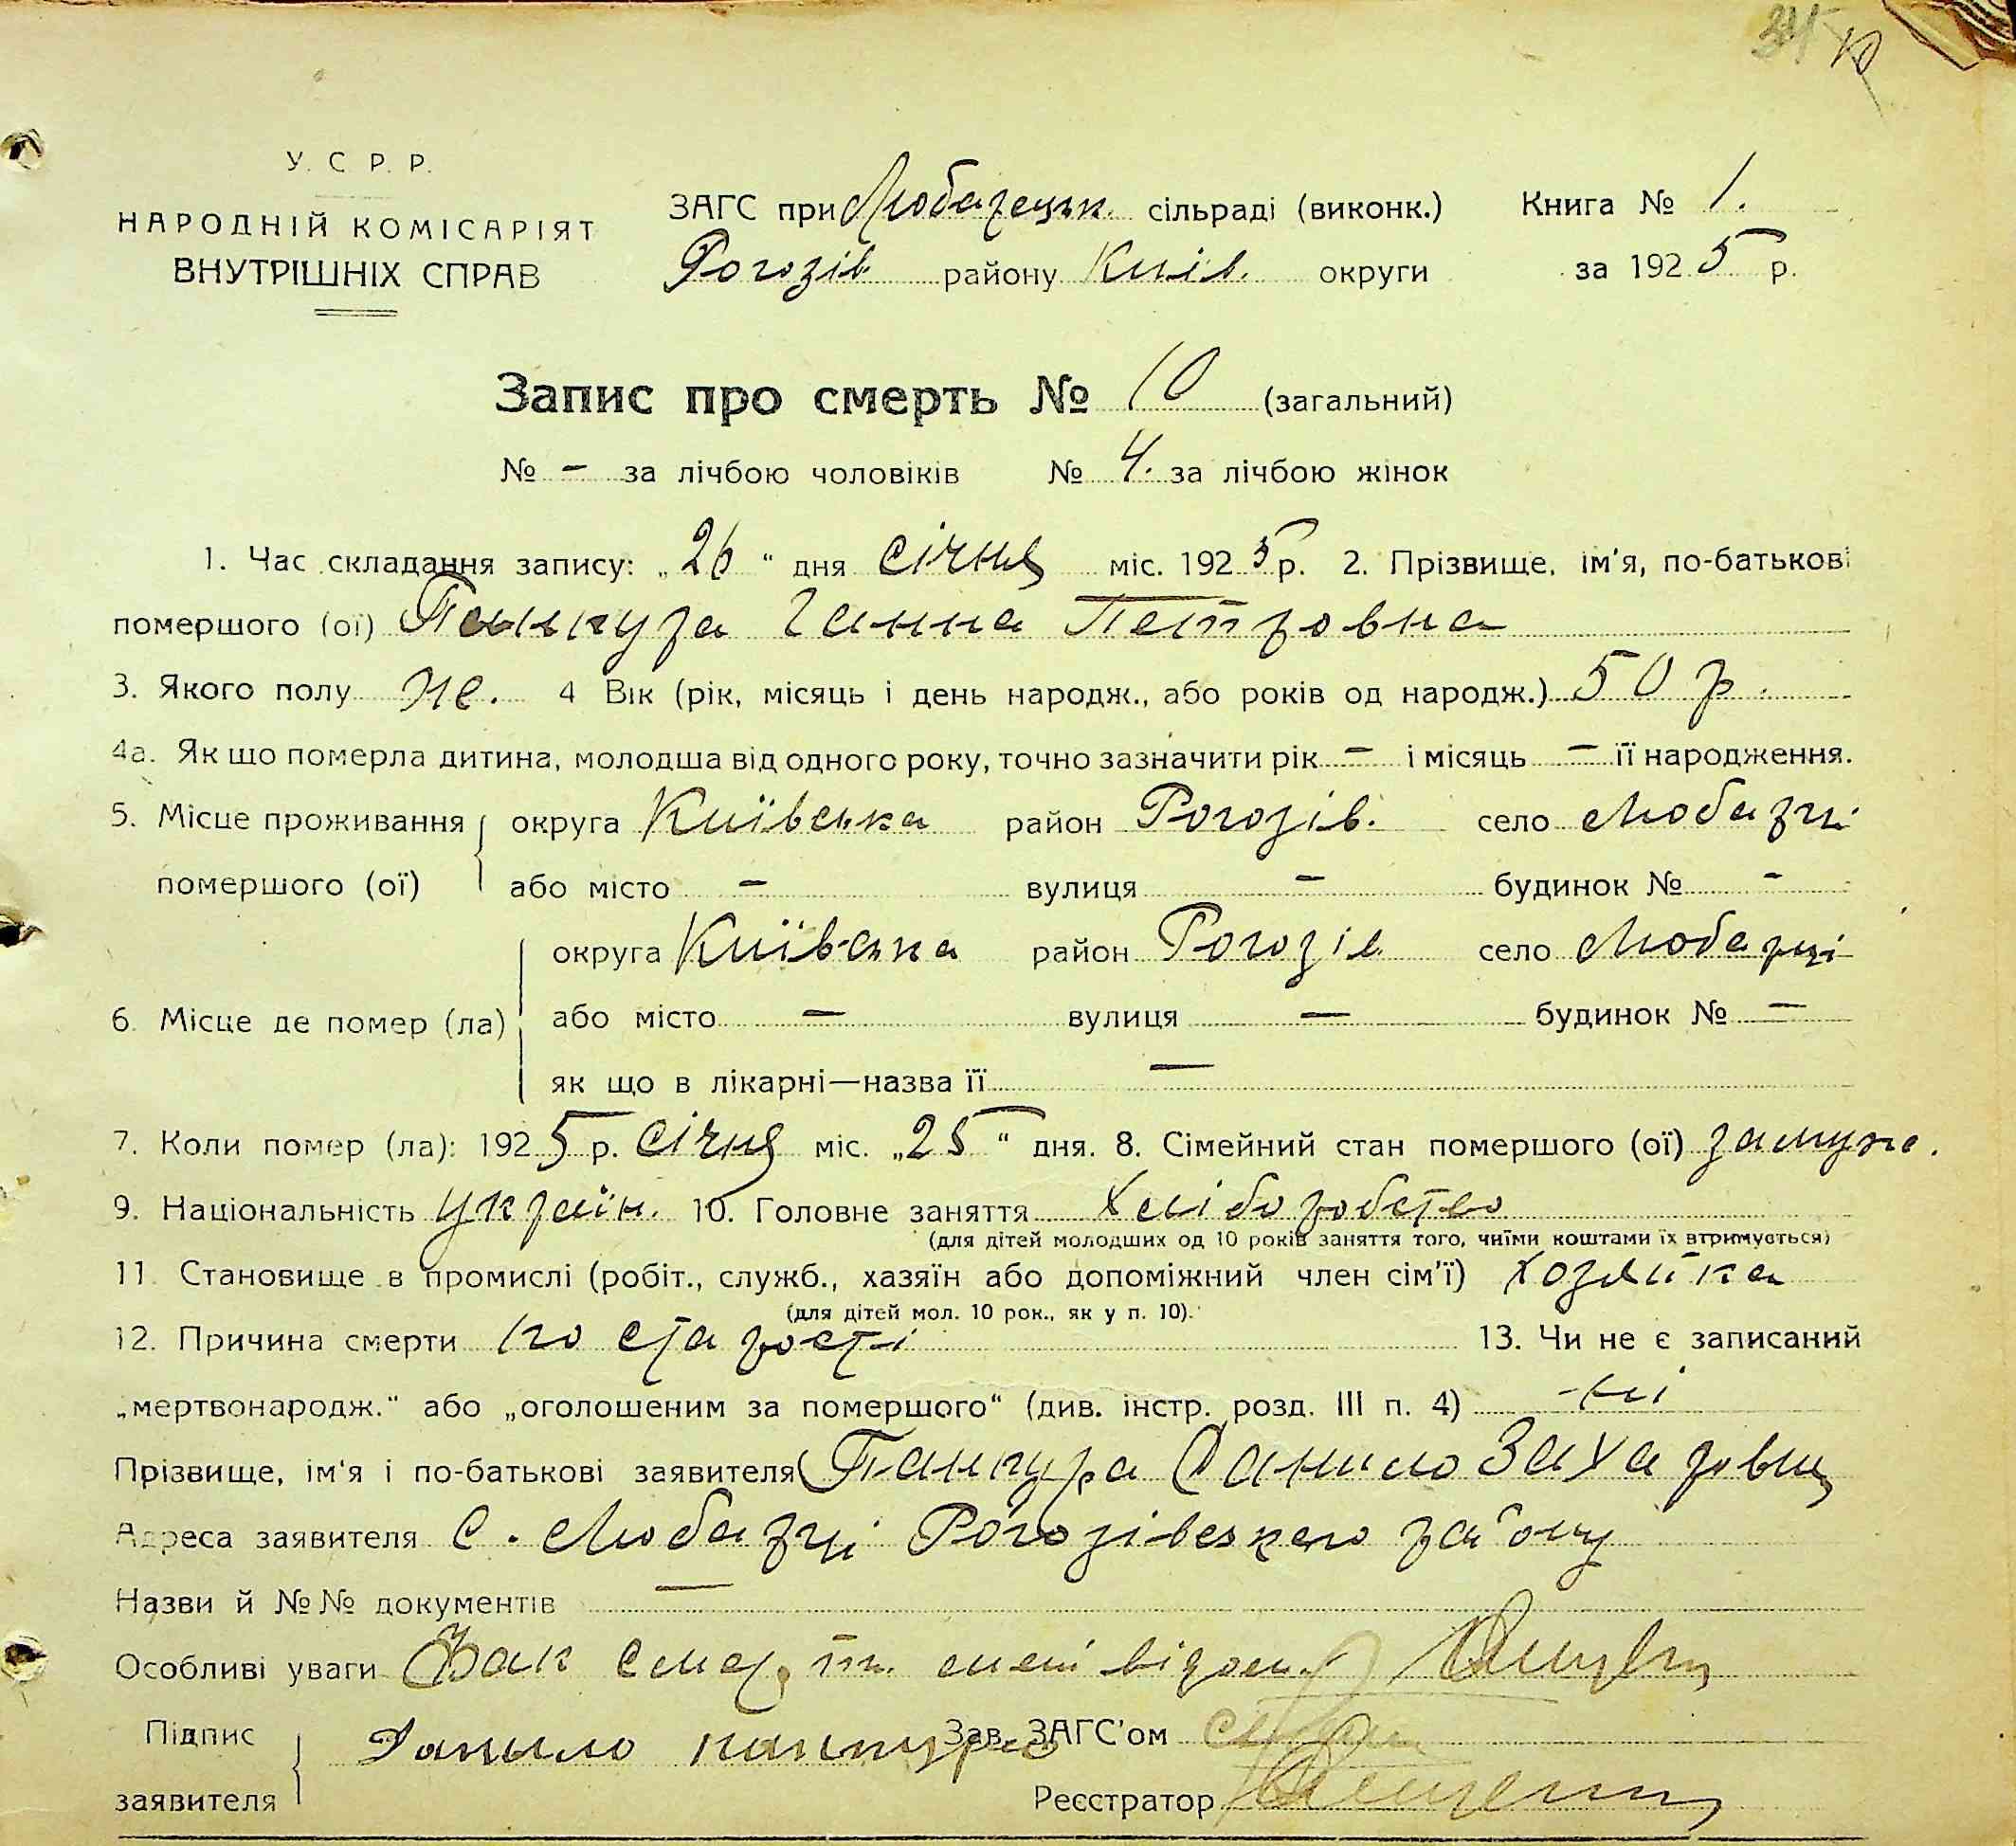 У. С. Р. Р.
НАРОДНІЙ КОМІСАРІЯТ
ВНУТРІШНІХ СПРАВ
ЗАГС при Любарецьк. сільраді (виконк.) Книга № 1.
Рогозів району Київ. округи за 1925 р.
Запис про смерть № 10 (загальний)
№ – за лічбою чоловіків № 4. за лічбою жінок
1. Час складання запису: „26“ дня січня міс. 1925 р. 2. Прізвище, ім'я, по-батькові
помершого (ої) Панкура Ганна Петровна
3. Якого полу же. 4 Вік (рік, місяць і день народж., або років од народж.) 50 р.
4а. Як що померла дитина, молодша від одного року, точно зазначити рік – і місяць – її народження.
5. Місце проживання помершого (ої) округа Київська район Рогозів. село Любарці
або місто – вулиця – будинок № –
6. Місце де помер (ла) округа Київська район Рогозів село Любарці
або місто – вулиця – будинок № –
як що в лікарні—назва її –
7. Коли помер (ла): 1925 р. січня міс. „25“ дня. 8. Сімейний стан помершого (ої) замуже.
9. Національність Україн. 10. Головне заняття Хліборобство
(для дітей молодших од 10 років заняття того, чиїми коштами їх втримується)
11. Становище в промислі (робіт., служб., хазяїн або допоміжний член сім'ї) хозяйка
(для дітей мол. 10 рок., як у п. 10).
12. Причина смерти по старості 13. Чи не є записаний
„мертвонародж.“ або „оголошеним за помершого“ (див. інстр. розд. III п. 4) - ні
Прізвище, ім'я і по-батькові заявителя Панкура Данило Захарович
Адреса заявителя С. Любарці Рогозівського району
Назви й №№ документів –
Особливі уваги
Підпис заявителя Данило панкура Зав. ЗАГС'ом
Реєстратор